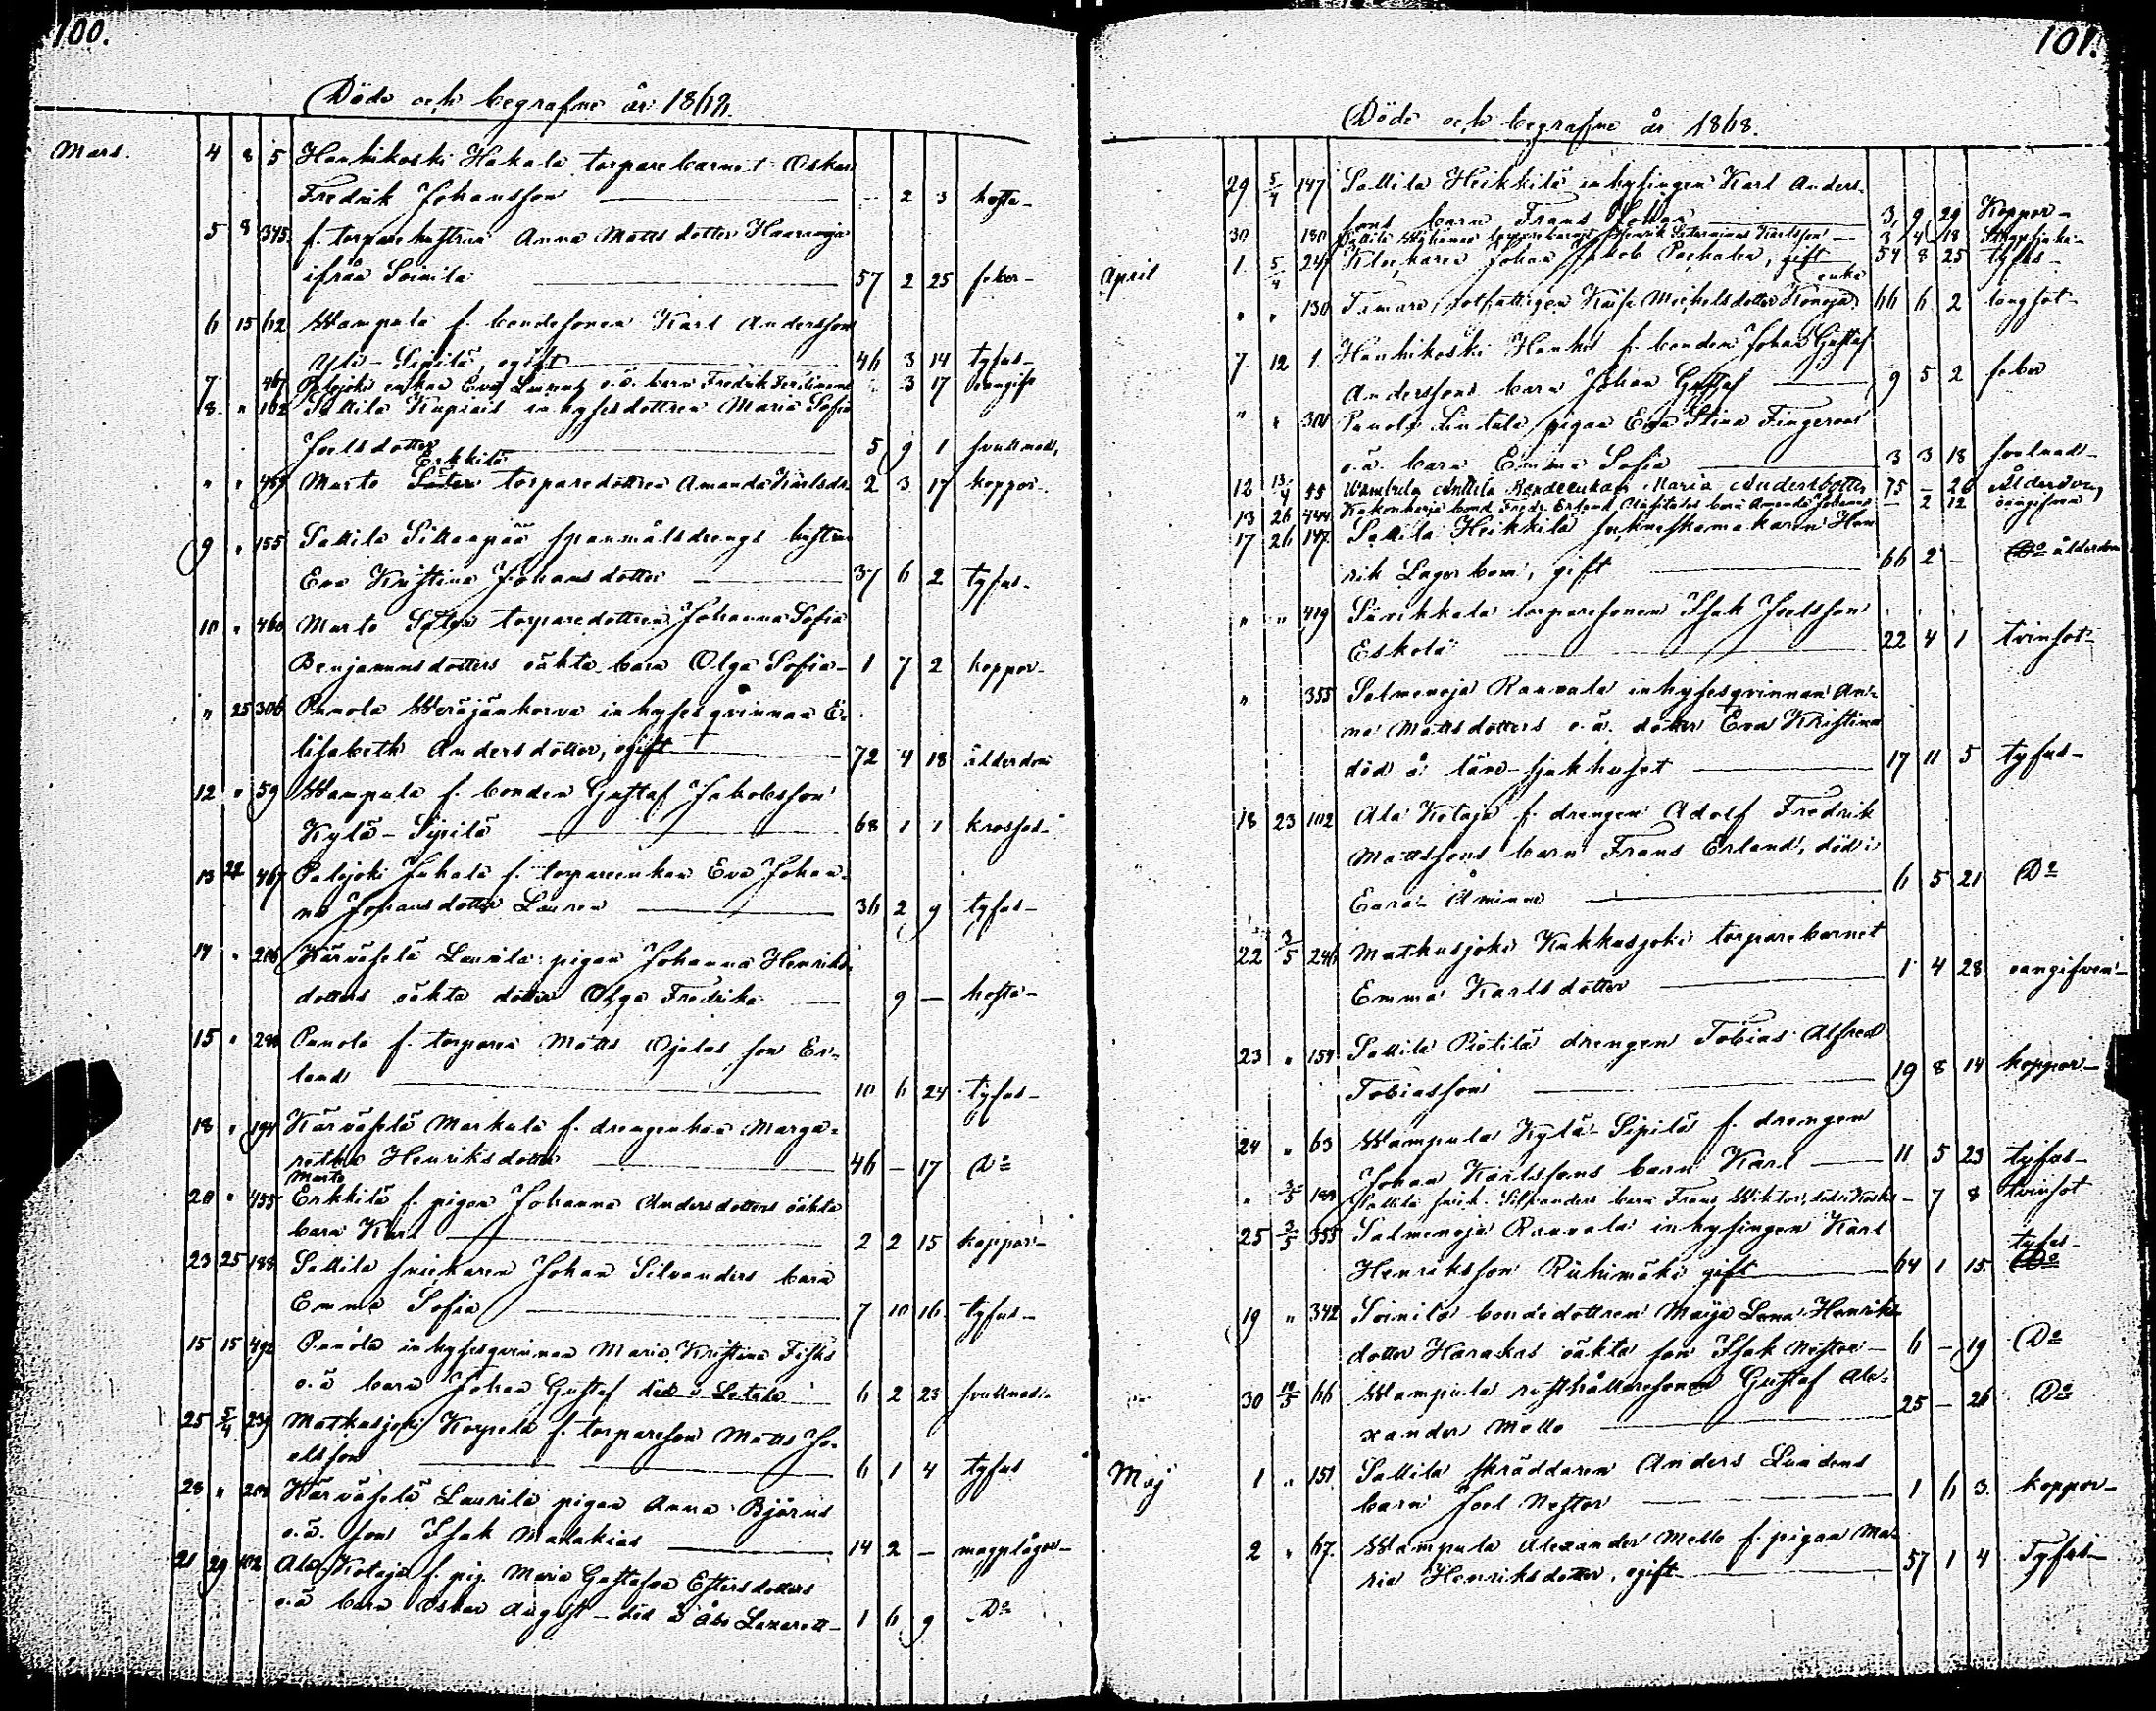 100.
Döde och begrafne år 1868.
Mars. 4 8 5 Hanhikoski Hakala torparebarnet Oskar
Fredrik Johansson — 2 3 hosta
5 8 345 f. torparehustrun Anna Matts dotter Haaroja
ifrån Soinila 57 2 25 feber
6 15 62 Wampula f. bondesonen Karl Andersson
Yli-Sipilä, ogift 46 3 14 tyfus
7 467 Palojoki enkan Eva Laurens o.ä. barn Fredrik Ferdinand 3 17 oangif
8 " 102 Sallila Kupiais inhysesdottren Maria Sofia
Joelsdotter 5 9 1 svullnad,
Erkkilä
" " 459 Murto torparedottren Amanda Karlsdr. 2 3 17 koppor
9 " 155 Sallila Sillanpää spanmålsdrengs hustrun
Eva Kristina Johansdotter 37 6 2 tyfus
10 " 460 Murto Säteri torparedottren Johanna Sofia
Benjaminsdotters oäkta barn Olga Sofia 1 7 2 koppor
" 25 306 Punola Weräjänkorva inhysesqvinnan E-
lisabeth Andersdotter, ogift 72 4 18 ålderdom
12 " 59 Wampula f. bonden Gustaf Jakobsson
Kylä-Sipilä 68 1 1 krossot
13 22 467 Palojoki Juhala f. torpareenkan Eva Johan-
na Johansdotter Lauren 36 2 9 tyfus
14 " 206 Kärväselä Laurila pigan Johanna Henriks-
dotters oäkta dotter Olga Fredrika 9 — hosta
15 " 280 Punola f. torparen Matts Ojalas son Er-
land 10 6 24 tyfus
18 " 194 Kärväselä Markula f. drengenkan Marga-
retha Henriksdotter 46 — 17 Do
Murto
20 " 455 Erkkilä f. pigan Johanna Andersdotters oäkta
barn Karl 2 2 15 koppor
23 25 188 Sallila snickaren Johan Silvanders barn
Emma Sofia 7 10 16 tyfus
15 15 492 Punola inhysesqvinnan Maria Kristina Fisks
o.ä barn Johan Gustaf död i Letala 6 2 23 svullnad
25 5/4 239 Matkusjoki Korpela f. torpareson Matts Jo-
elsson 6 1 4 tyfus
28 " 204 Kärväselä Laurila pigan Anna Björns
o.ä. son Isak Malakias 14 2 — magplågor
21 29 102 Ala Kotaja f. pig. Maria Gustafva Estersdotters
o.ä barn Oskar August - död å Åbo Lazarett 1 6 9 Do
101.
Döde och begrafne år 1868.
29 5/4 147 Sallila Heikkilä inhysingen Karl Anders-
sons barn Frans 3 9 29 Koppor
30 180 Sallila torparebarnet Henrik Karlsson 3 4 18
April 1 5/4 247 Klockaren Johan Jakob Pachalen, gift 54 8 25 tyfus
enka
" " 130 Tamare, rotfattigen Kaisa Michelsdotter Konoja 66 6 2 lungsot
7 12 1 Hanhikoski Hanhi f. bonden Johan Gustaf
Anderssons barn Johan Gustaf 9 5 2 feber
" " 300 Punola Lintula pigan Eva Stina Fingeroos
o.ä. barn Emma Sofia 3 3 18 svulnad
12 13/4 55 Wambula Anttila Bondeenkan Maria Andersdotter 75 — 26 Åldersvag
13 26 444 Kakonharja bond. Fredr. Erland barn Amanda Johanna — 2 12 oangifven
17 26 147 Sallila Heikkilä Hen-
rik Lagerbom, gift 66 2 — ålderdom
" " 419 Suvikkala torparesonen Isak Joelsson
Eskola 22 4 1 tvinsot
" 355 Salmenoja Rauvala inhysesqvinnan An-
na Mattsdotters o.ä. dotter Eva Kristina
död å läns-sjukhuset 17 11 5 tyfus
18 23 102 Ala Kotaja f. drengen Adolf Fredrik
Mattssons barn Frans Erland, död i
Eura Åminne 6 5 21 Do
22 3/5 246 Matkusjoki Kukkusjoki torparebarnet
Emma Karlsdotter 1 4 28 oangifven
23 " 159 Sallila Pietilä drengen Tobias Alfred
Tobiasson 19 8 14 koppor
24 " 63 Wampula Kylä-Sipilä f. drengen
Johan Karlssons barn Karl 11 5 23 tyfus
" 3/5 188 Sallila snick. Silvanders barn Frans Wiktor, död i — 7 8 tvinsot
25 3/5 355 Salmenoja Rauvala inhysingen Karl
Henriksson Riihimäki gift 64 1 15 tyfus
19 " 342 Soinila bondedottren Maija Lena Henriks-
dotter Harakas oäkta son Isak Nestor 6 — 19 Do
30 10/5 66 Wampula rusthållaresonen Gustaf Ale-
xander Mello 25 — 26 Do
Maj 1 " 151 Sallila skräddaren Anders Lundens
barn Joel Nestor 1 6 3 koppor
2 " 67 Wampula Alexander Mello f. pigan Ma-
ria Henriksdotter, ogift 57 1 4 Tyfus